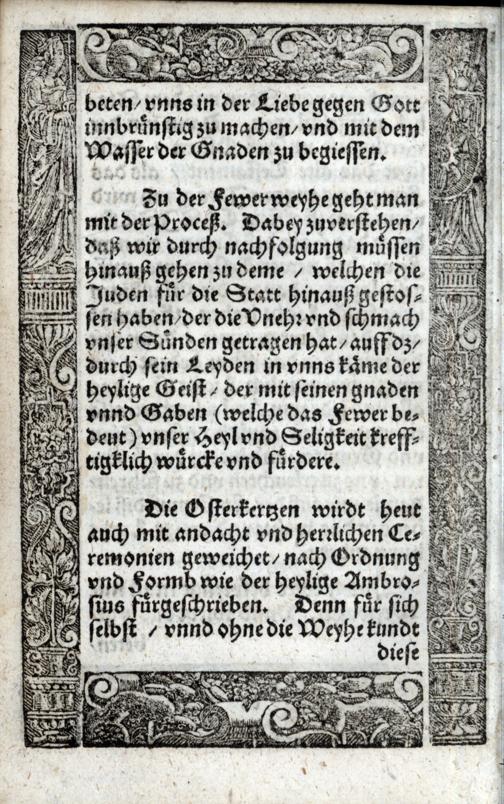 beten/ vnns in der Liebe gegen Gott
innbrünstig zu machen/ vnd mit dem
Wasser der Gnaden zu begiessen.
Zu der Fewerweyhe geht man
mit der Proceß. Dabey zuverstehen/
daß wir durch nachfolgung müssen
hinauß gehen zu deme / welchen die
Juden für die Statt hinauß gestos-
sen haben/ der die Vnehr vnd schmach
vnser Sünden getragen hat/ auff dz/
durch sein Leyden in vnns käme der
heylige Geist/ der mit seinen gnaden
vnnd Gaben (welche das Fewer be-
deut) vnser Heyl vnd Seligkeit kreff-
tigklich würcke vnd fürdere.
Die Osterkertzen wirdt heut
auch mit andacht vnd herrlichen Ce-
remonien geweichet/ nach Ordnung
vnd Formb wie der heylige Ambro-
sius fürgeschrieben. Denn für sich
selbst / vnnd ohne die Weyhe kundt
diese